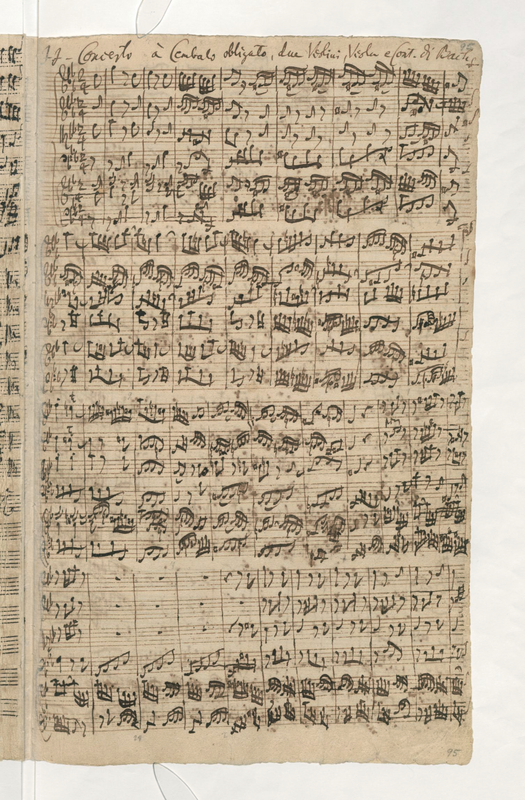 J. J. Concerto à Cembalo obligato, due Violini, Viola e Cont. di Bach
95